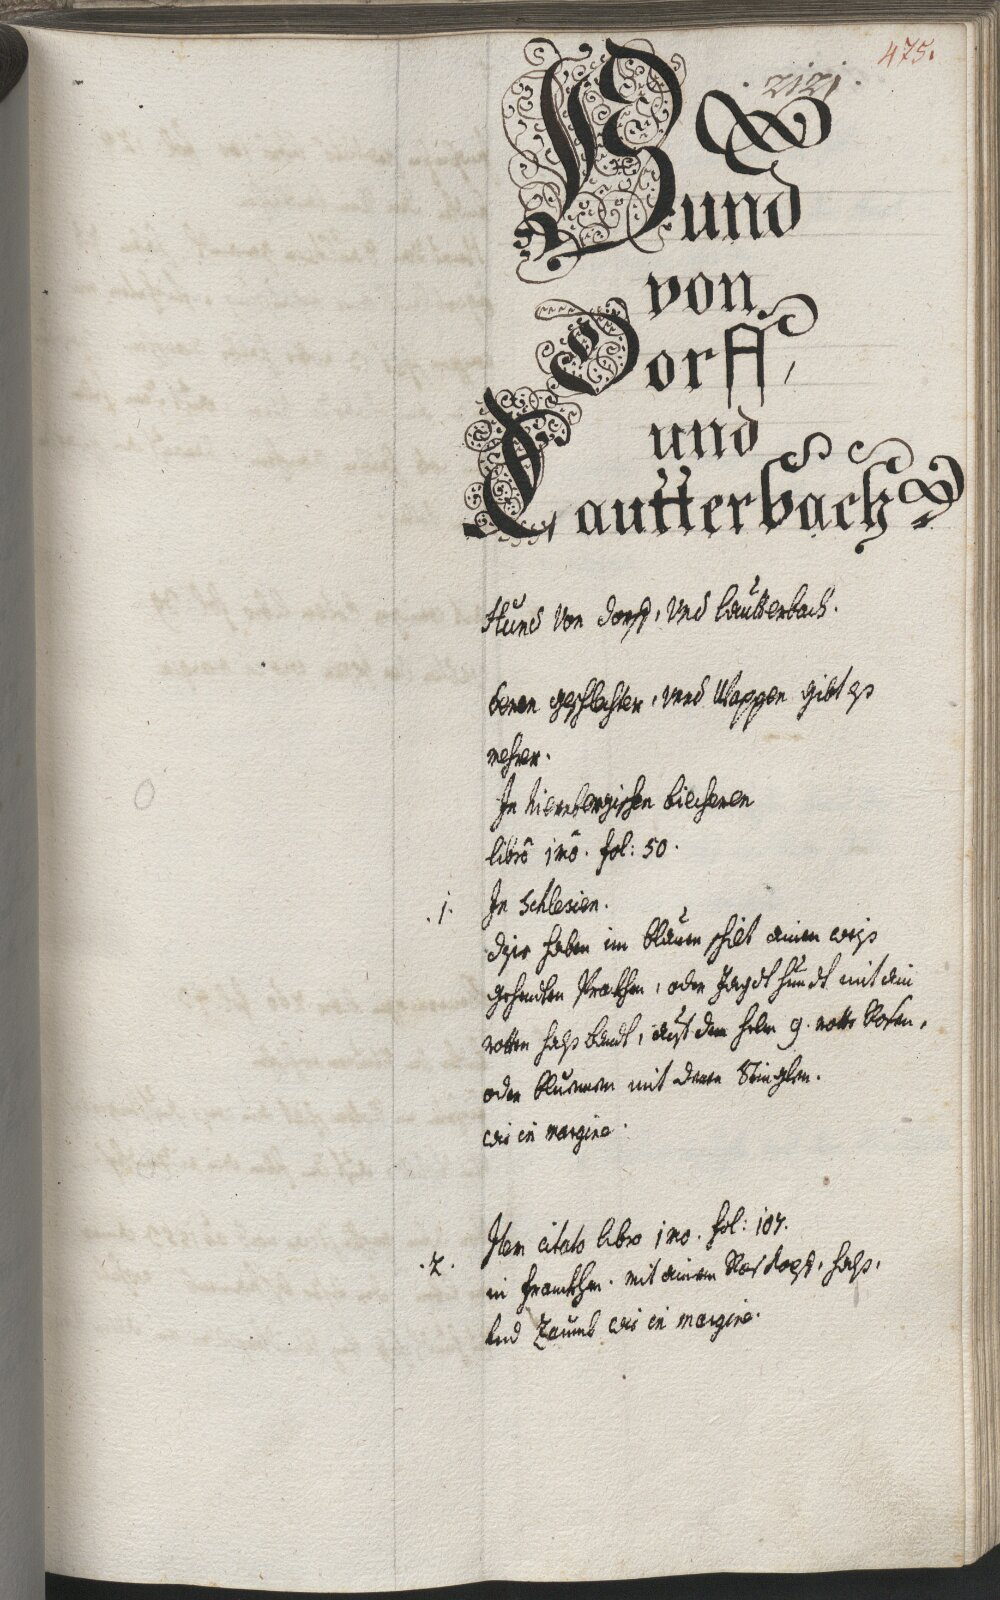 475.
. 2121 .
Hund
von
Dorff,
und
Lautterbach
Hund von Dorff, und Lautterbach.
deren geschlechter, und Wappen gibt es
mehrer.
In Niernbergischen biecheren
libro 1mo. fol: 50.
.1. In Schlesien.
dise haben im blauen schilt ainen weis
gehendten Prackhen, oder Jagdt hundt mit ain
rotten hals bandt, auf dem helm 9. rotte Rosen,
oder bluemen mit deren Stinglen.
wie in margine.
.2. Item citato libro 1mo. fol: 107.
in Franckhen. mit ainem Ros Kopf, hals,
und Zaumb wie in margine.